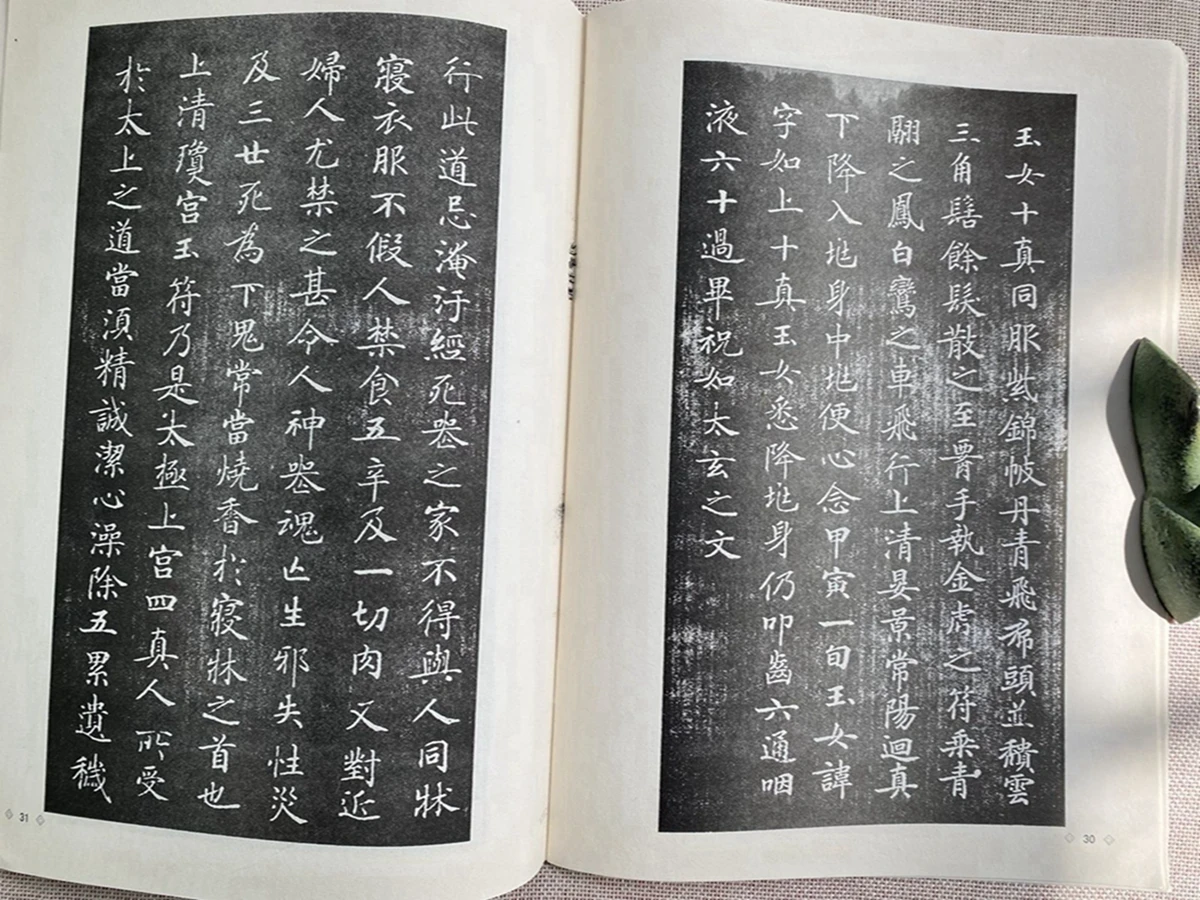 玉女十真同服紫錦帔丹青飛帬頭並積雲
三角髻餘髮散之至署手執金虎之符乘青
翮之鳳白鸞之車飛行上清晏景常陽迴真
下降入地身中地便心念甲寅一旬玉女諱
字如上十真玉女悉降地身仍叩齒六通咽
液六十過畢祝如太玄之文
30
行此道忌淹汙經死喪之家不得與人同牀
寢衣服不假人禁食五辛及一切肉又對近
婦人尤禁之甚令人神喪魂亡生邪失性災
及三世死為下鬼常當燒香於寢牀之首也
上清瓊宮玉符乃是太極上宮四真人所受
於太上之道當須精誠潔心澡除五累遺穢
31